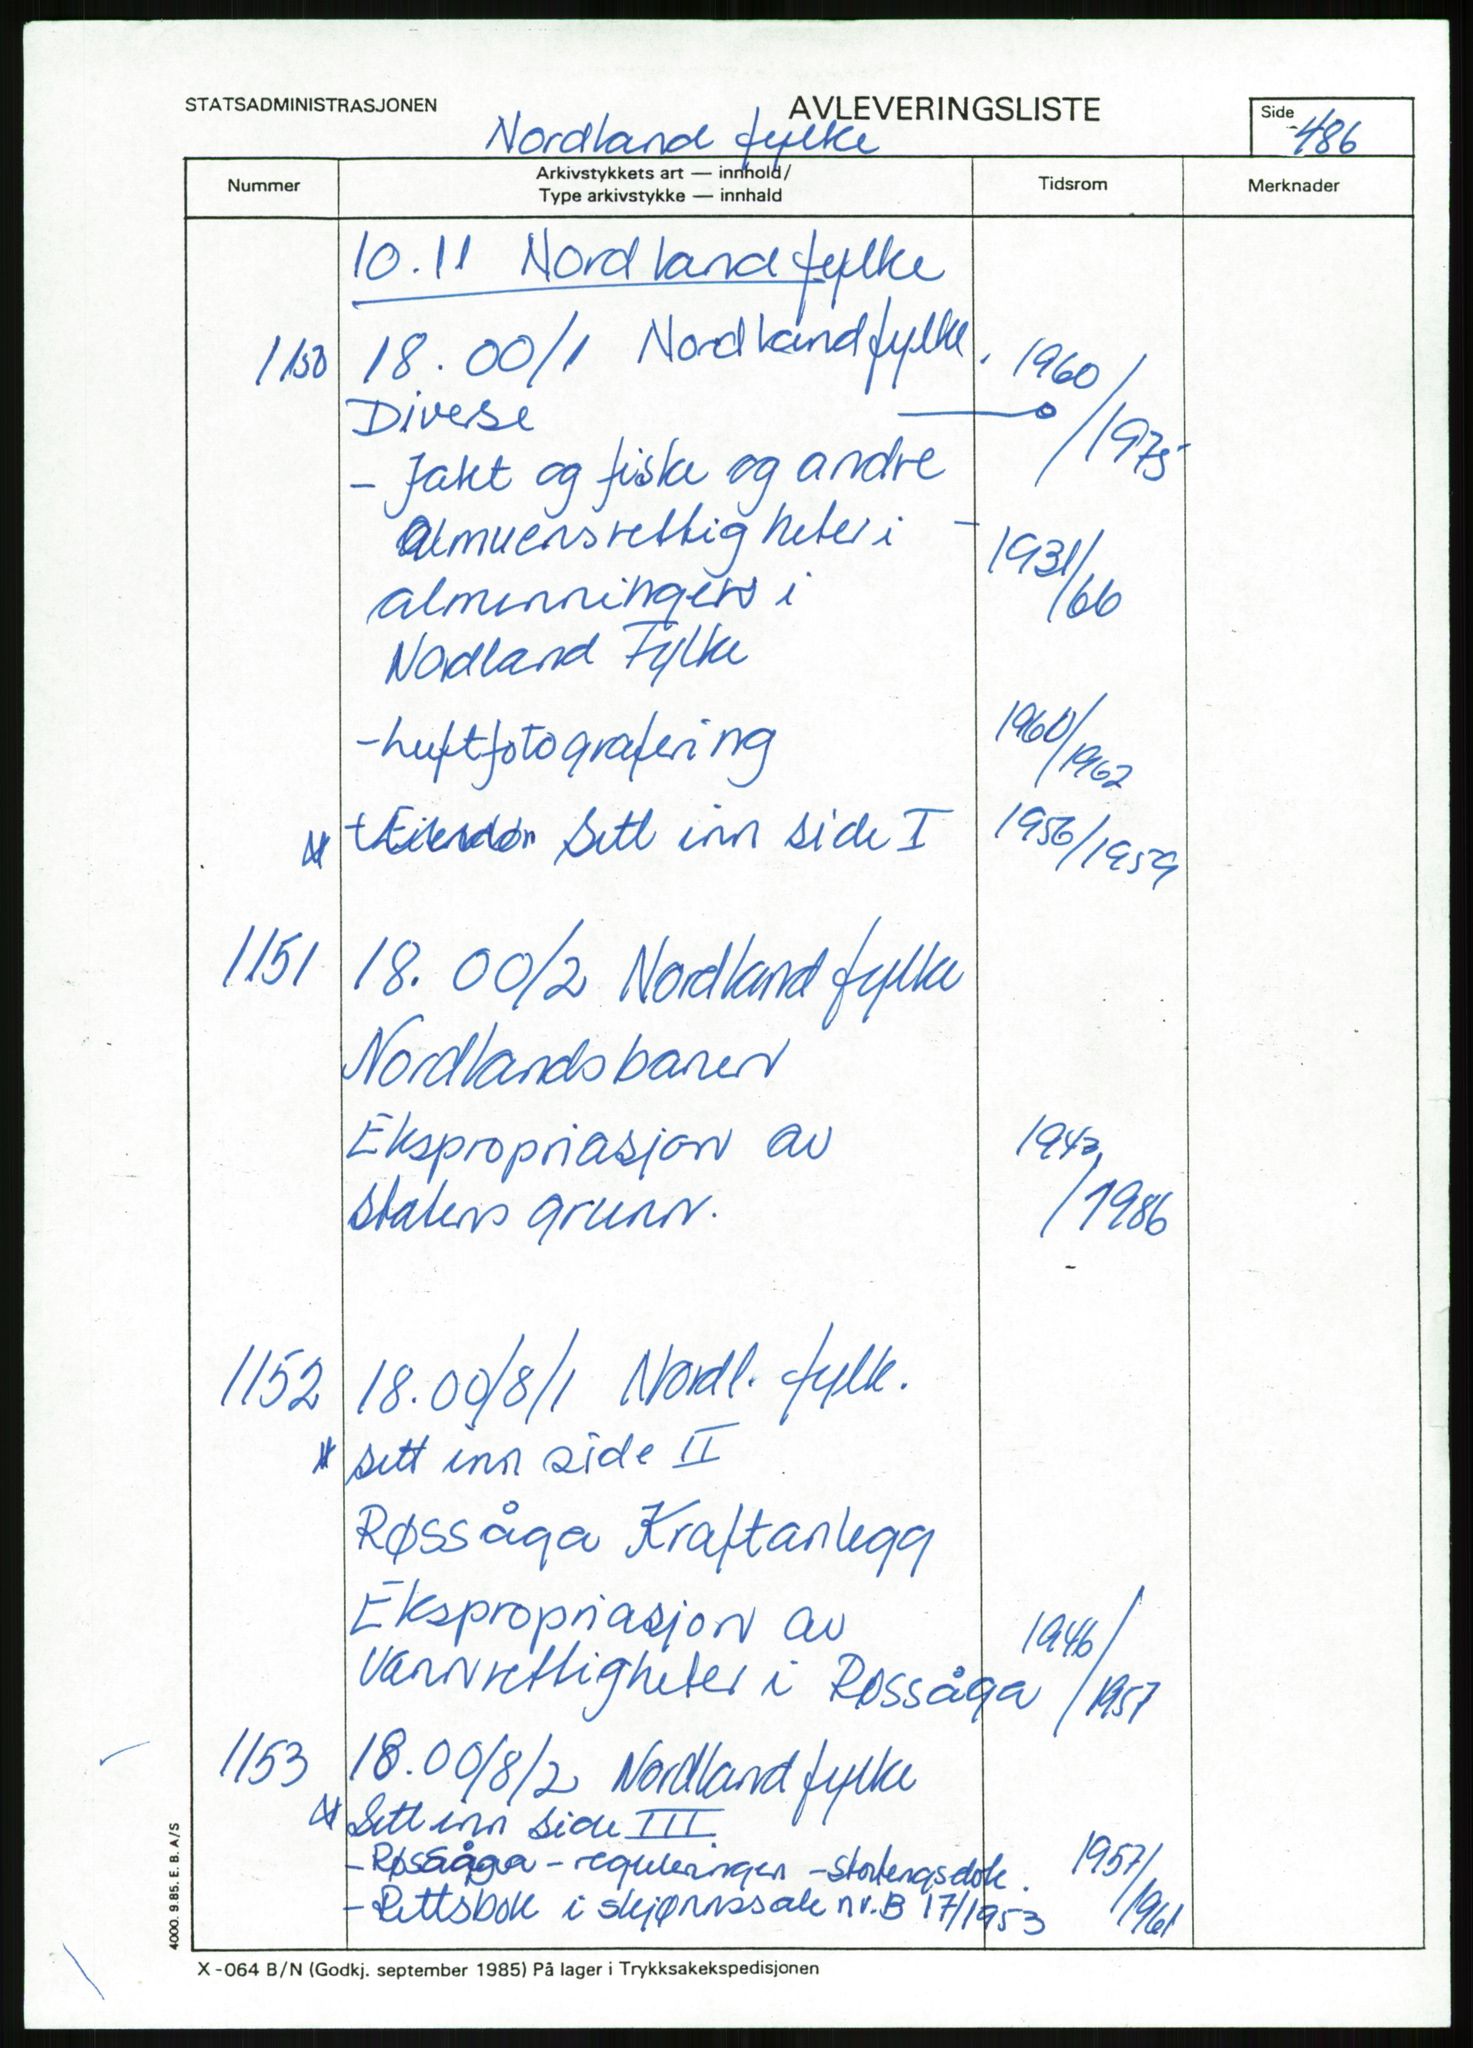 STATSADMINISTRASJONEN
AVLEVERINGSLISTE
Side
486
Nordland fylke
Nummer
Arkivstykkets art — innhold/
Type arkivstykke — innhald
Tidsrom
Merknader
10.11 Nordland fylke
1150 18.00/1 Nordland fylke. 1960
Diverse /1975
- Jakt og fiske og andre
almuensrettigheter i - 1931/
almenningen i /66
Nordland Fylke
- Luftfotografering 1960/1962
* Sett inn side I 1956/1959
1151 18.00/2 Nordland fylke
Nordlandsbanen
Ekspropriasjon av
Statens grunn. /1986
1152 18.00/8/1 Nordl. fylk.
* Sett inn side II
Røssåga Kraftanlegg
Ekspropriasjon av 1946/
Vannrettigheter i Røssåga /1957
1153 18.00/8/2 Nordland fylke
* Sett inn side III
- Røssåga - reguleringen - Stortingsdok. 1957/
- Rettsbok i skjønnssak nr. B 17/1953 /1961
4000. 9.85. E. B. A/S
X-064 B/N (Godkj. september 1985) På lager i Trykksakekspedisjonen